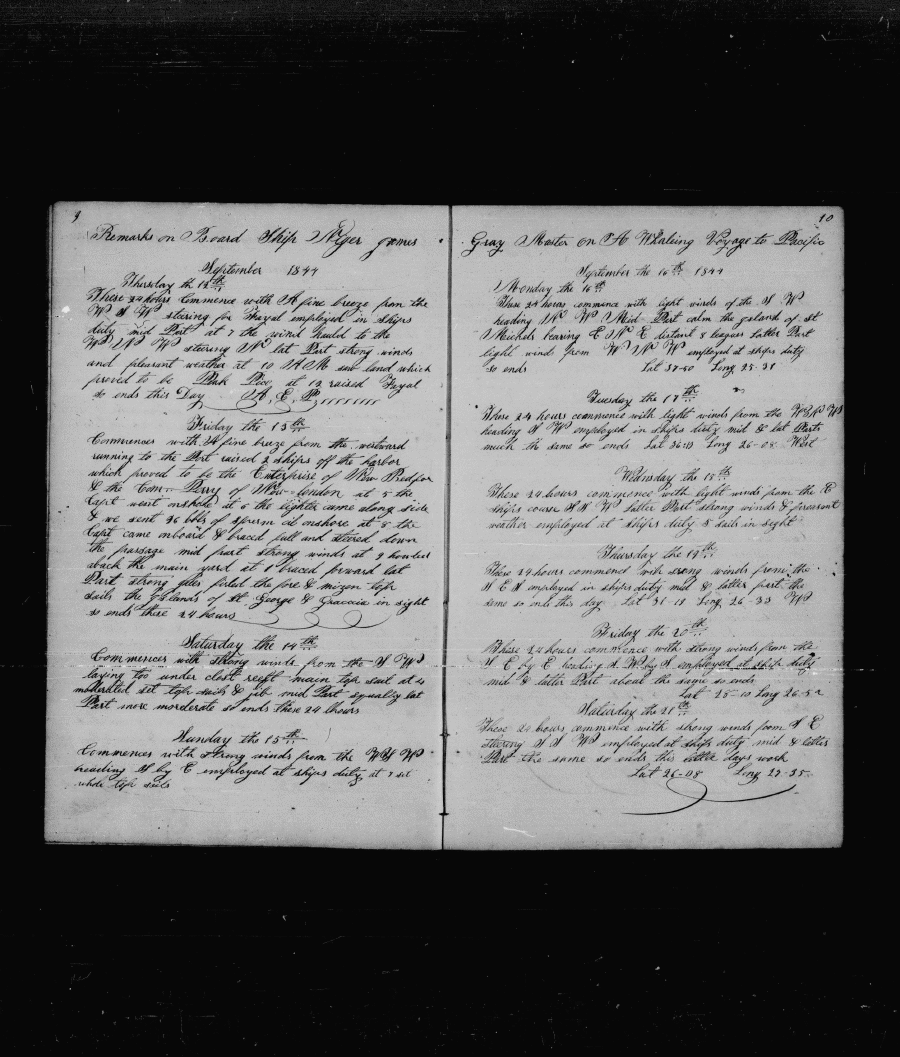 9
Remarks on Board Ship Niger James
September 1844
Thursday th 12th
These 24 hours commence with A fine breeze from the
W S W stering for Fayal employed in ships
duty mid Part at 7 the wind hauld to the
W N W steering N lat Part strong winds
and pleasant weather at 10 A M saw land which
proved to be Peak Pico at 12 raised Fayal
so ends this Day A, E, P
Friday the 13th
Commences with A fine breze from the westward
running to the Port raised 2 ships off the harbor
which proved to be the Enterprise of New Bedford
& the Com Perry of New-london at 5 the
Capt went onshore at 6 the lighter came along side
& we sent 36 bbls of sperm oil onshore at 8 the
Capt came onboard & braced full and steered down
the passage mid part strong winds at 2 howled
aback the main yard at braced forward lat
Part strong gales furled the fore & mizen top
sails the Islands of St. George & Graccia in sight
so ends these 24 hours
Saturday the 14th
Commences with strong winds from the S W
laying too under close reeft main top sail at 4
moderated set top sails & jib mid Part squaly lat
Part more morderate so ends these 24 hours
Sunday the 15th
Commences with strong winds from the W S W
heading S by E employed at ships duty at 7 set
whole top sails
10
Gray Master on A Whaleing Voyage to Pacific
September the 16th 1844
Monday the 16th
These 24 hours commence with light winds of the S W
heading N W Mid Part calm the Island of St
Michels bearing E N E distant 8 leagues Latter Part
light wind from W N W employed at ships duty
so ends Lat 37-50 Long 25-31
Tuesday the 17th
These 24 hours ceommence with light winds from the W S W
heading S W employed in ships duty mid & lat Parts
much the same so ends Lat 36-13 Long 26-08 West
Wednsday the 18th
These 24 hours commence with light winds from the E
ships course S S W latter Part strong winds & pleasant
weather employed at ships duty 5 sails in sight
Thursday the 19th
These 24 hours commence with srong winds from the
S E employed in ships duty mid & latter part the
same so ends this day Lat 31-18 Long 26-33 W
Friday the 20th
These 24 hours commence with strong winds from the
S E by E heading S W by S employed at ship duty
mid & latter Part about the same so ends
Lat 28-10 Long 26-52
Saturday the 21st
These 24 hours commince with strong winds from S E
steering S S W employed at ships duty mid & latter
Part the same so ends this latter days work
Lat 26-08 Long 27-35